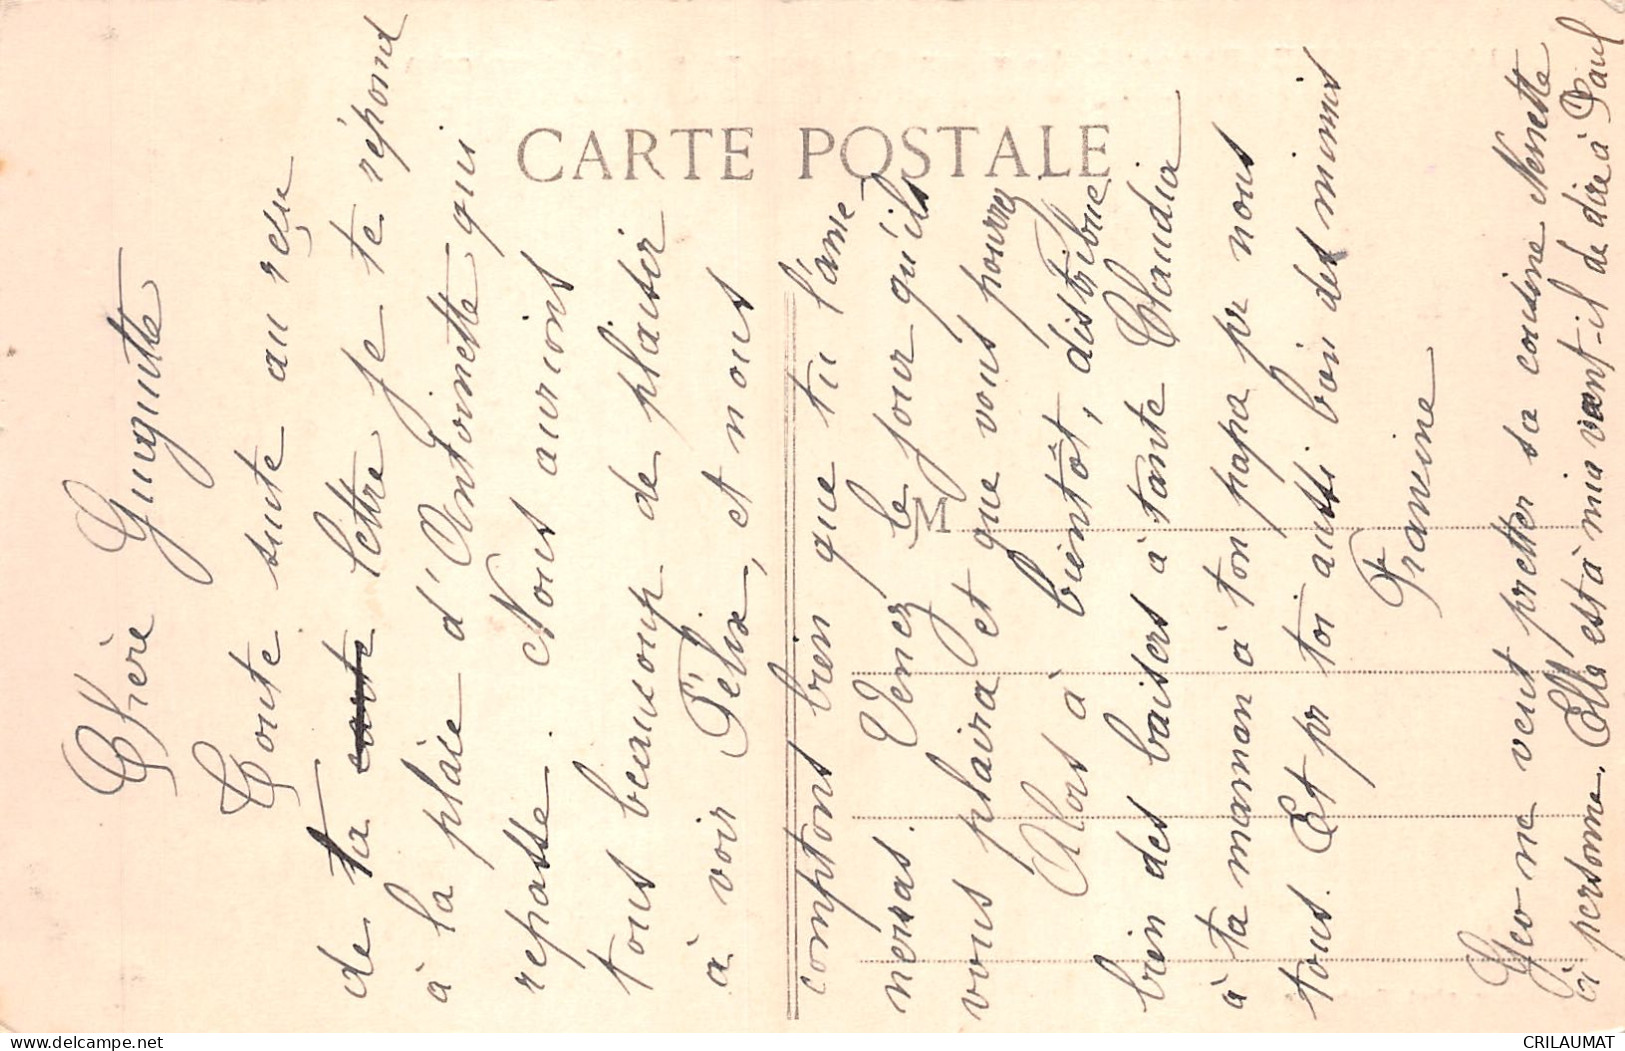 CARTE POSTALE
M
Chère Guiguitte
Toute suite au reçu
de ta carte lettre je te répond
à la place d'Antoinette qui
repasse. Nous aurions
tous beaucoup de plaisir
à voir Félix, et nous
comptons bien que tu l'ame
neras. Venez le jour qu'ils
vous plaira et que vous pourrez
Alors à bientôt, distribue
bien des baisers à tante Claudia
à ta maman à ton papa pr nous
tous. Et pr toi aussi bien des mimis
Francine
Géo ne veut pretter sa cousine Nesette
à personne. Elle est à mia vant-il de dire à Paul
CRILAUMAT
delcampe.net